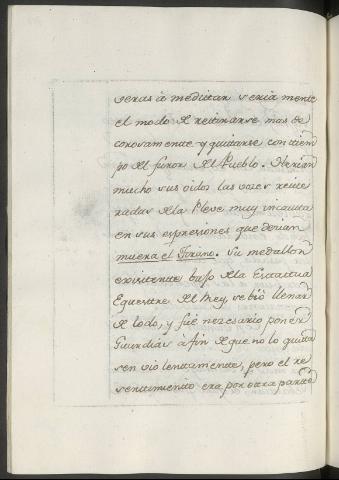 veras à meditar seriamente
el modo de retirarse mas de
corosamente y quitarse con tiem
po del furor del Pueblo. Herian
mucho sus oidos las vozes reite
radas de la Pleve muy incauta
en sus expresiones que decian
muera el Tirano. Su medallon
existente bajo de la Estatua
Equestre del Rey, se bió llenar
de lodo, y fué nezesario poner
Guardias à fin de que no lo quita
sen violentamente, pero el re
sentimiento era por otra parte